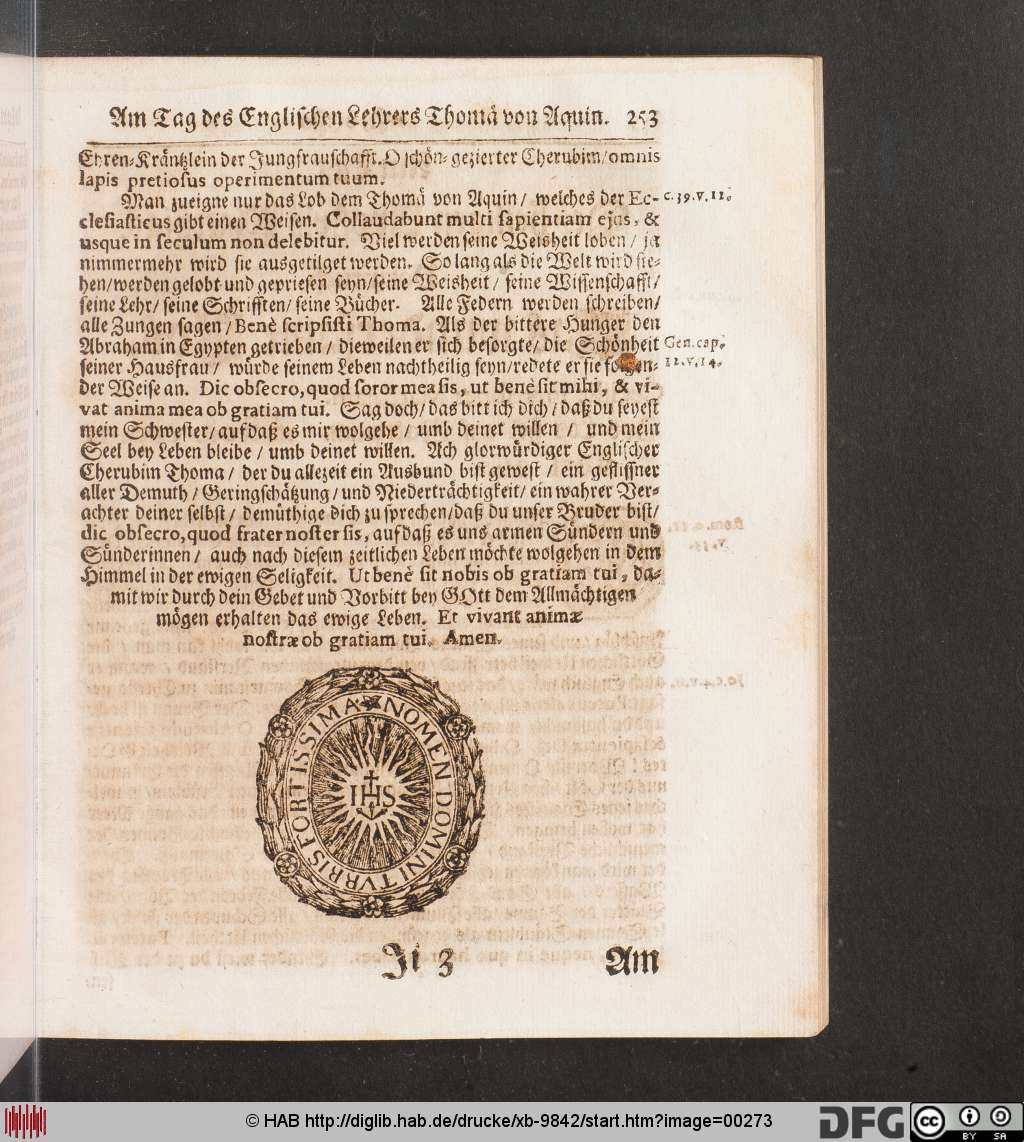 Am Tag des Englischen Lehrers Thomä von Aquin. 253
Ehren-Kräntzlein der Jungfrauschafft. O schön-gezierter Cherubim/omnis
lapis pretiosus operimentum tuum.
Man zueigne nur das Lob dem Thomä von Aquin/ welches der Ec-
c. 39. v. 11.
clesiasticus gibt einen Weisen. Collaudabunt multi sapientiam ejus, &
usque in seculum non delebitur. Viel werden seine Weisheit loben/ ja
nimmermehr wird sie ausgetilget werden. So lang als die Welt wird ste-
hen/werden gelobt und gepriesen seyn/seine Weisheit/ seine Wissenschafft/
seine Lehr/ seine Schrifften/ seine Bücher. Alle Federn werden schreiben/
alle Zungen sagen/ Benè scripsisti Thoma. Als der bittere Hunger den
Abraham in Egypten getrieben/ dieweilen er sich besorgte/ die Schönheit
Gen. cap.
seiner Hausfrau/ würde seinem Leben nachtheilig seyn/redete er sie folgen-
12. v. 14.
der Weise an. Dic obsecro, quod soror mea sis, ut benè sit mihi, & vi-
vat anima mea ob gratiam tui. Sag doch/ das bitt ich dich/ daß du seyest
mein Schwester/ auf daß es mir wolgehe/ umb deinet willen/ und mein
Seel bey Leben bleibe/ umb deinet willen. Ach glorwürdiger Englischer
Cherubim Thoma/ der du allezeit ein Ausbund bist gewest/ ein geflissner
aller Demuth/ Geringschätzung/ und Niederträchtigkeit/ ein wahrer Ver-
achter deiner selbst/ demüthige dich zu sprechen/daß du unser Bruder bist/
dic obsecro, quod frater noster sis, auf daß es uns armen Sündern und
Sünderinnen/ auch nach diesem zeitlichen Leben möchte wolgehen in dem
Himmel in der ewigen Seligkeit. Ut benè sit nobis ob gratiam tui, da-
mit wir durch dein Gebet und Vorbitt bey GOtt dem Allmächtigen
mögen erhalten das ewige Leben. Et vivant animæ
nostræ ob gratiam tui. Amen.
NOMEN DOMINI TVRRIS FORTISSIMA
IHS
Ji 3 Am
© HAB http://diglib.hab.de/drucke/xb-9842/start.htm?image=00273
DFG
cc BY SA